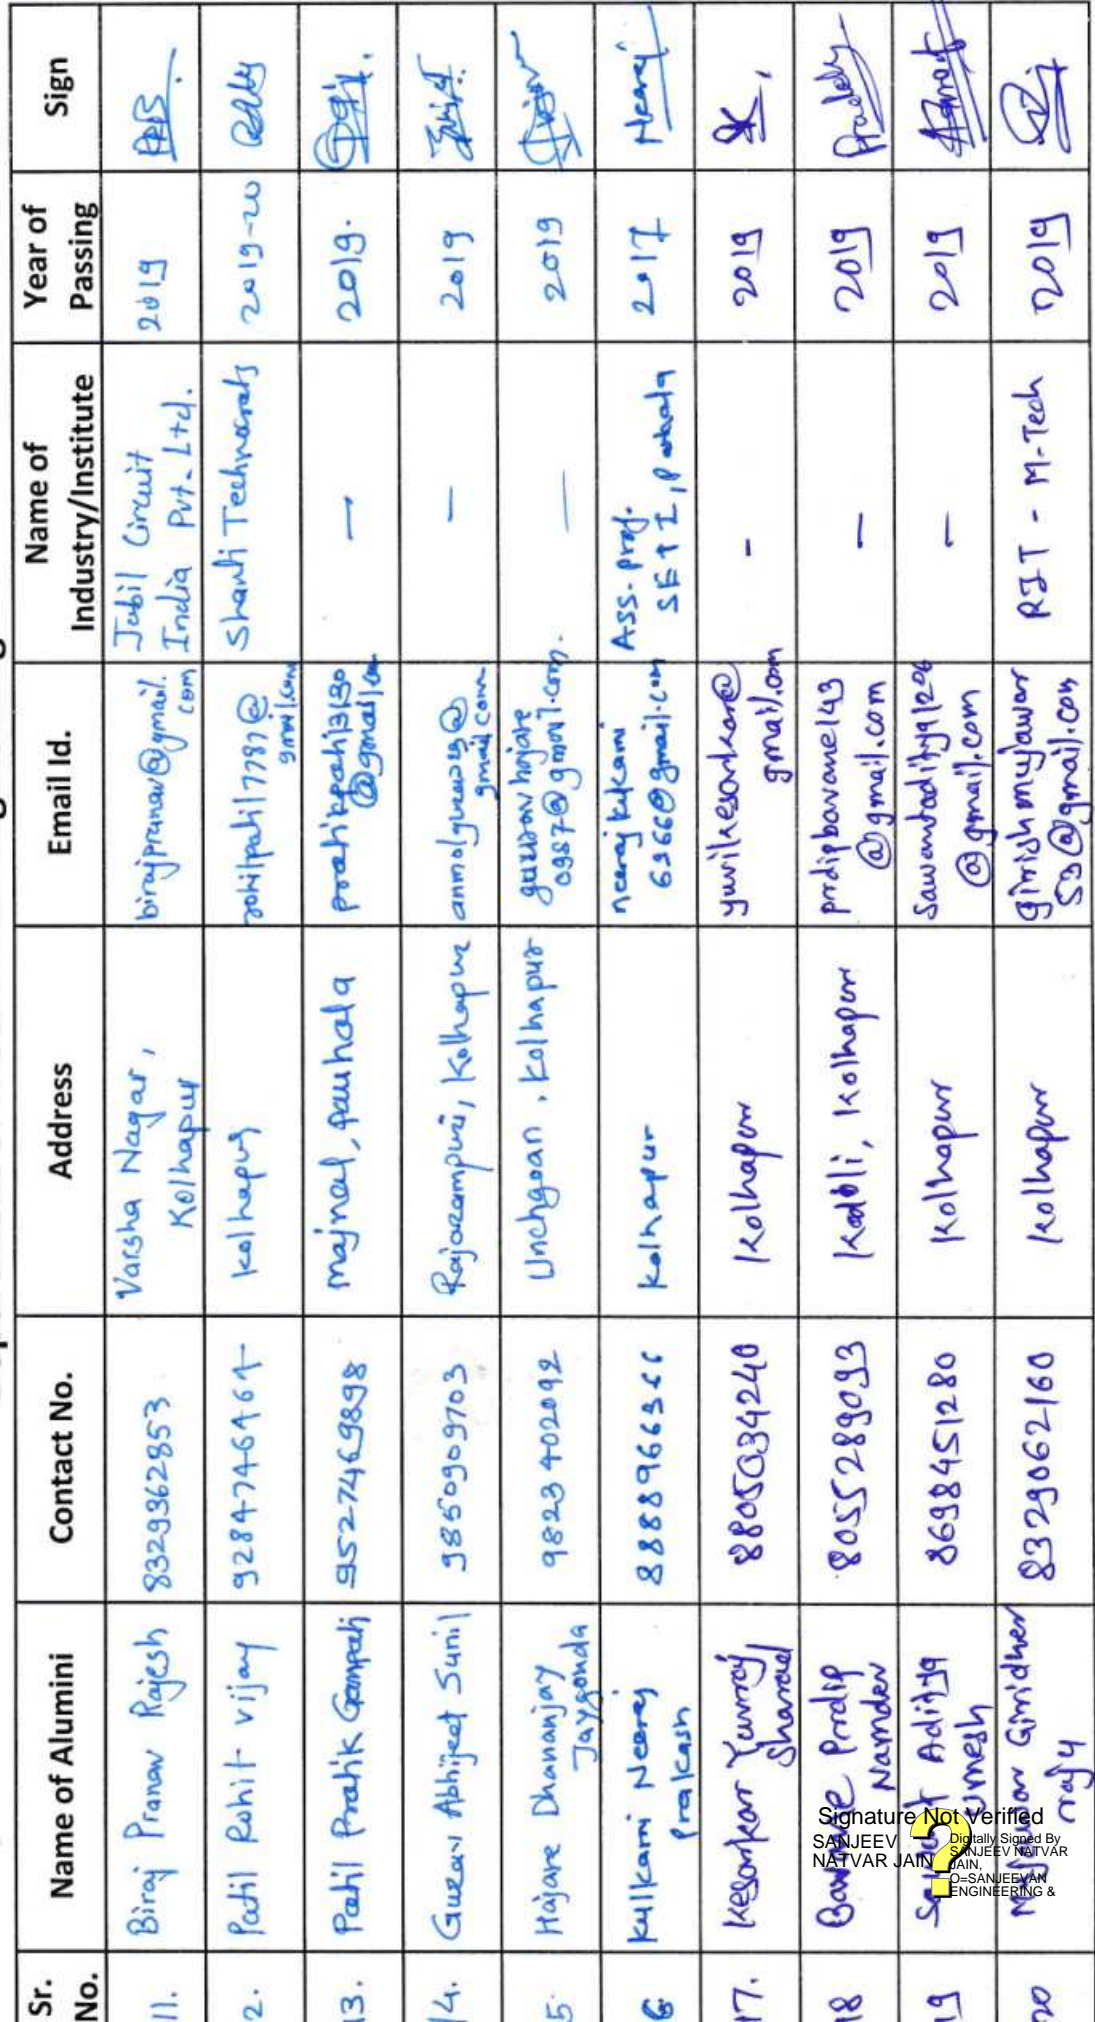 Sr. No.
Name of Alumini
Contact No.
Address
Email Id.
Name of Industry/Institute
Year of Passing
Sign
11.
Biraj Pranav Rajesh
8329362853
Varsha Nagar,
Kolhapur
birajpranav@gmail.
com
Jabil Circuit
India Pvt. Ltd.
2019
2.
Patil Rohit vijay
Kolhapur
gmail.com
Shanti Technocrats
2019-20
13.
Patil Pratik Ganpati
9527469898
majnal, panhala
pratikpatil3130
@gmail.com
—
2019.
14.
Gurav Abhijeet Sunil
9850909703
Rajarampuri, Kolhapur
gmail.com
—
2019
5.
Hajare Dhananjay
Jaygonda
9823402092
Unchgoan, Kolhapur
0987@gmail.com.
—
2019
6.
Kulkarni Neeraj
prakash
8888966366
Kolhapur
neerajkulkarni
6366@gmail.com
Ass. prof.
SETI, Panhala
2017
Neeraj
17.
Kesarkar Yuvraj
Sharad
8805034240
Kolhapur
yuvikesarkar@
gmail.com
-
2019
18
Bawane Prdip
Namdev
8055289093
Kolhapur
prdipbavane143
@gmail.com
—
2019
19
Aditya
Umesh
8698451280
Kolhapur
@gmail.com
—
2019
20
Giridhar
raju
8329062160
Kolhapur
girishmujawar
53@gmail.com
RIT - M-Tech
2019
Signature Not Verified
SANJEEV
NATVAR JAIN
Digitally Signed By
SANJEEV NATVAR
JAIN,
O=SANJEEVAN
ENGINEERING &